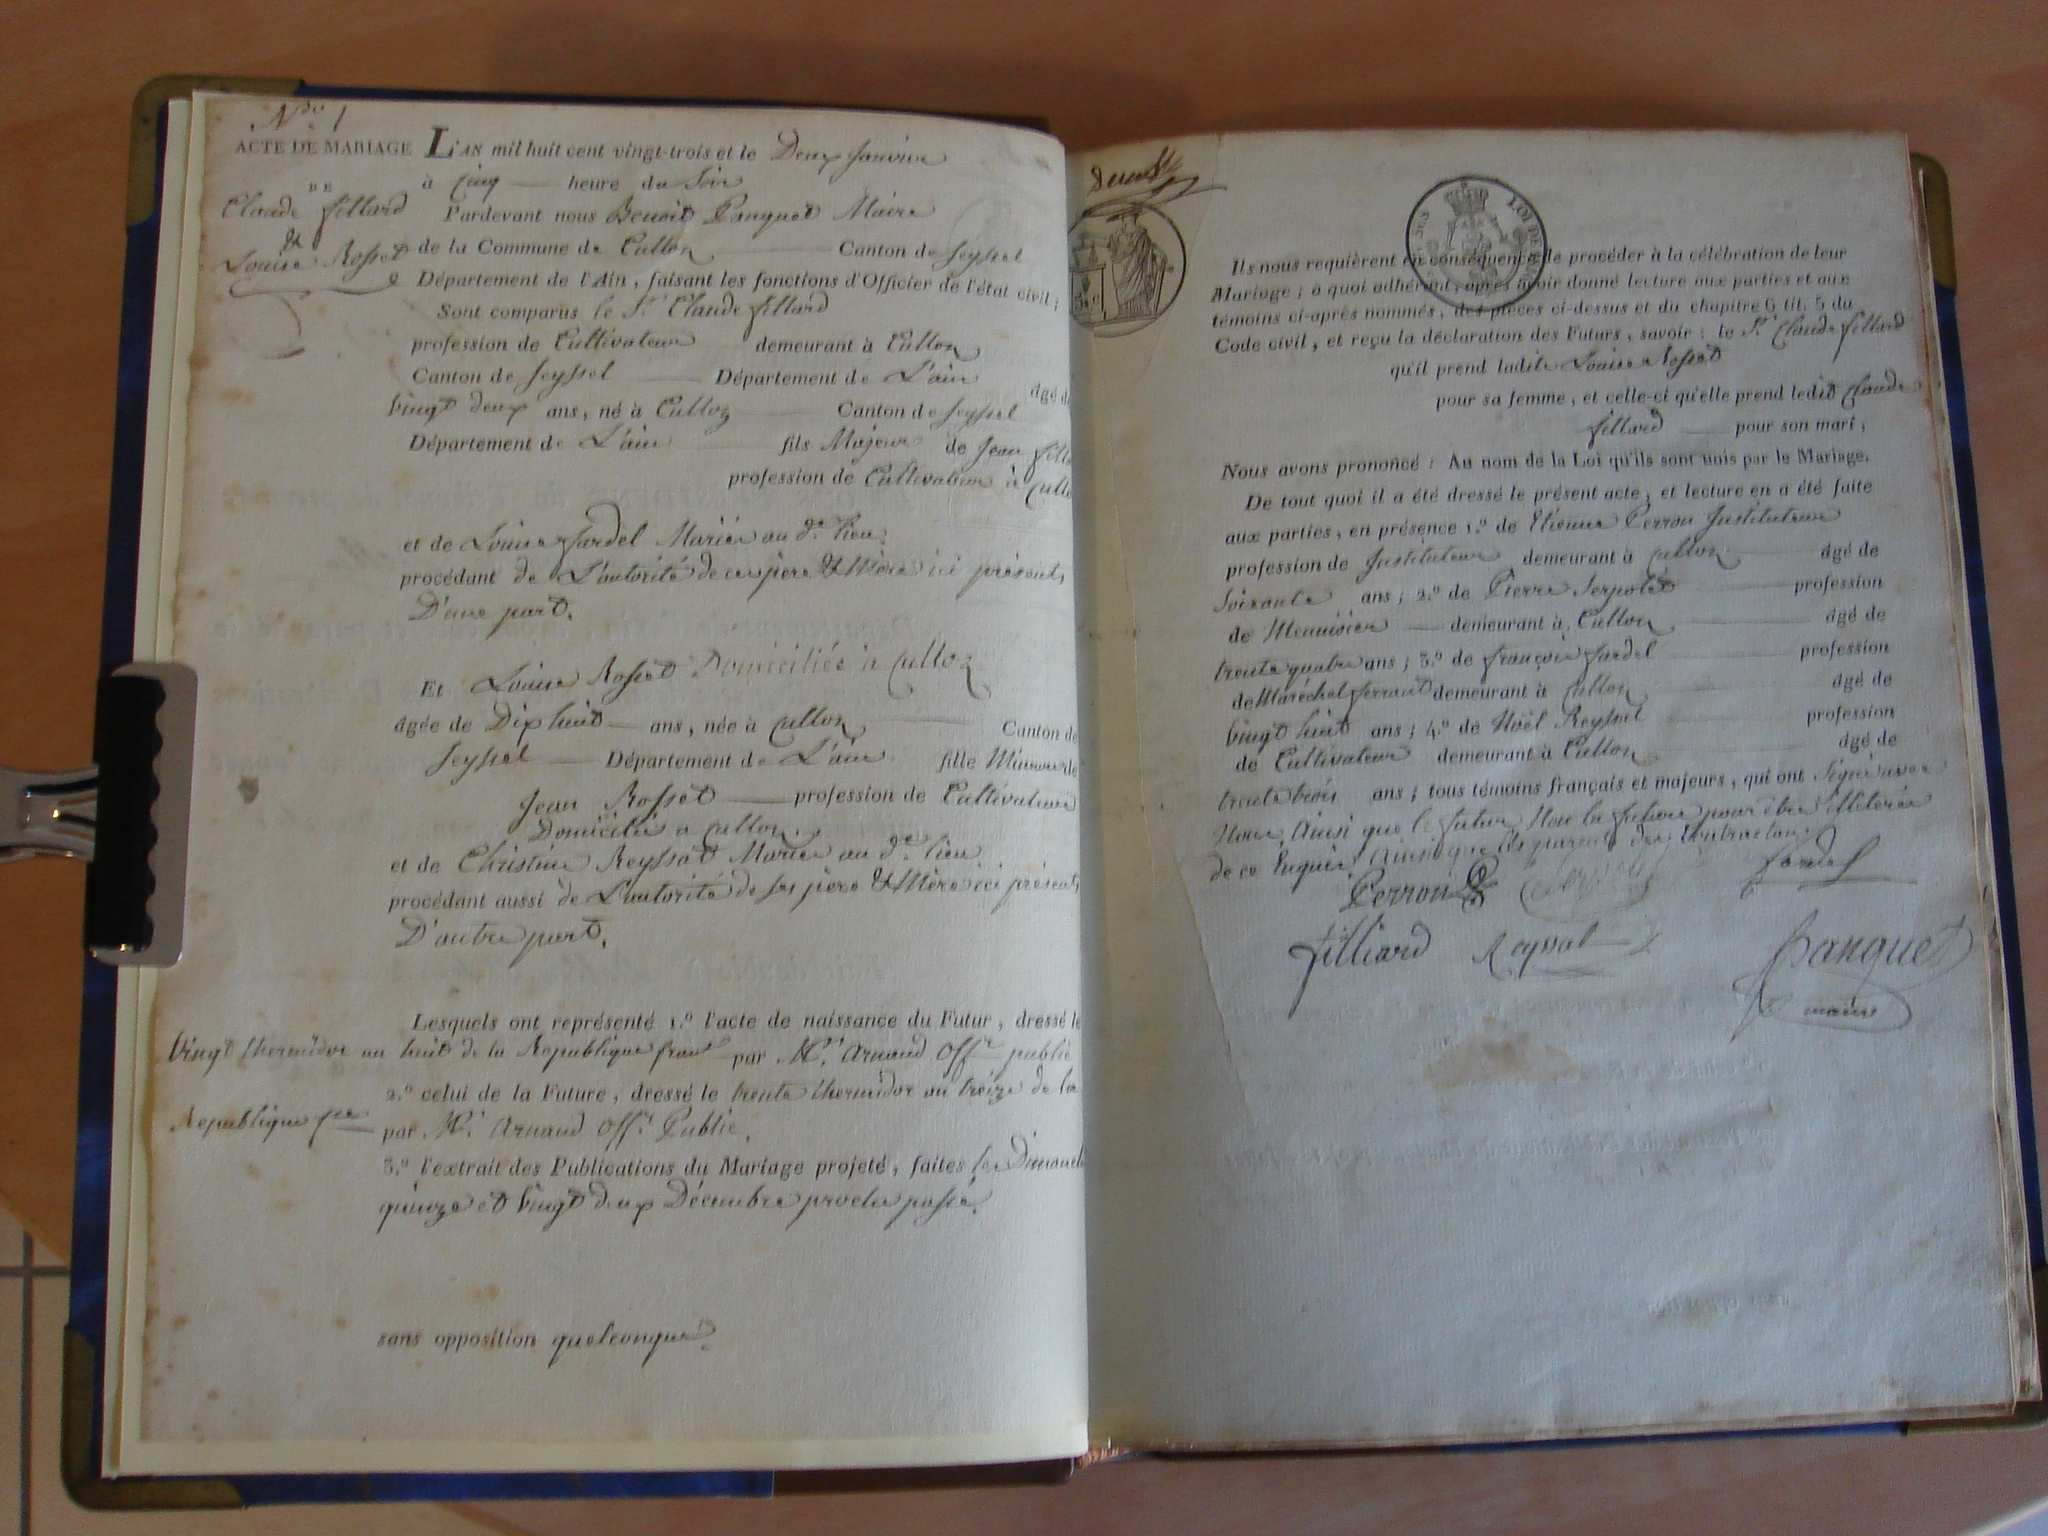 N.º 1
ACTE DE MARIAGE
DE
Claude fillard
&
Louise Rosset
L'AN mil huit cent vingt-trois et le Deux Janvier
à Cinq heure du Soir
Pardevant nous Benoit Panquet Maire
de la Commune de Culloz Canton de Seyssel
Département de l'Ain, faisant les fonctions d'Officier de l'état civil;
Sont comparus le S.r Claude fillard
profession de Cultivateur demeurant à Culloz
Canton de Seyssel Département de L'ain âgé de
Vingt deux ans, né à Culloz Canton de Seyssel
Département de L'ain fils Majeur de Jean
profession de Cultivateur à
et de Louise fardel Mariés au d.t lieu
procédant de L'autorité de ces père & Mère ici présents
D'une part.
Et Louise Rosset Domiciliée à Culloz
âgée de Dix huit ans, née à Culloz Canton de
Seyssel Département de L'ain fille Mineure de
Jean Rosset profession de Cultivateur
Domicilié a Culloz
et de Christine Reyssat Mariés au d.t lieu
procédant aussi de L'autorité de ses père & Mère ici présents
D'autre part.
Lesquels ont représenté 1.º l'acte de naissance du Futur, dressé le
Vingt thermidor an huit de la Republique par M.r Arnaud Off.r public
2.º celui de la Future, dressé le trente thermidor an treize de la
Republique f.se par M.r Arnaud Off.r Public.
3.º l'extrait des Publications du Mariage projeté, faites les
quinze et Vingt deux Décembre proche passé.
sans opposition quelconque.
LOI DE
Ils nous requièrent en conséquence de procéder à la célébration de leur
Mariage; à quoi adhérant, après avoir donné lecture aux parties et aux
témoins ci-après nommés, des pièces ci-dessus et du chapitre 6 tit. 5 du
Code civil, et reçu la déclaration des Futurs, savoir: le S.r Claude fillard
qu'il prend ladite Louise Rosset
pour sa femme, et celle-ci qu'elle prend ledit Claude
fillard pour son mari;
Nous avons prononcé: Au nom de la Loi qu'ils sont unis par le Mariage.
De tout quoi il a été dressé le présent acte, et lecture en a été faite
aux parties, en présence 1.º de Etienne Perron Instituteur
profession de Instituteur demeurant à Culloz âgé de
Soixante ans; 2.º de Pierre Serpolet profession
de Menuisier demeurant à Culloz âgé de
trente quatre ans; 3.º de françois fardel profession
de Maréchal ferrant demeurant à Culloz âgé de
Vingt huit ans; 4.º de Noël Reyssat profession
de Cultivateur demeurant à Culloz âgé de
trente trois ans; tous témoins français et majeurs, qui ont Signé avec
Nous, Ainsi que le futur Non la future pour être illiterée
de ce Enquis, Ainsi que les parents des Contractans.
Perron fardel
filliard Reyssat Panquet
maire